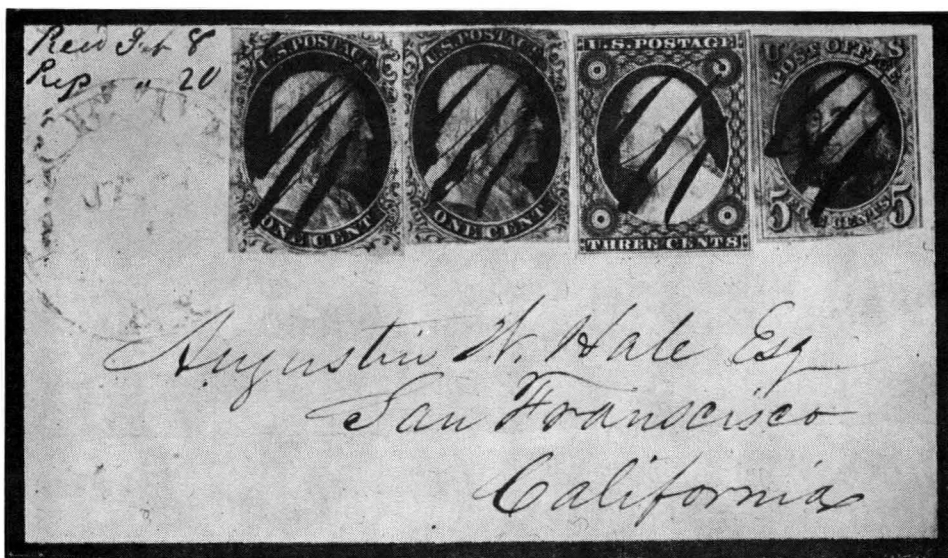 Recd Feb 8
Rep " 20
U.S. POSTAGE
ONE CENT
U.S. POSTAGE
ONE CENT
U.S. POSTAGE
THREE CENTS
U S
POST OFFICE
5 FIVE CENTS 5
Augustin W. Hale Esq
San Francisco
California